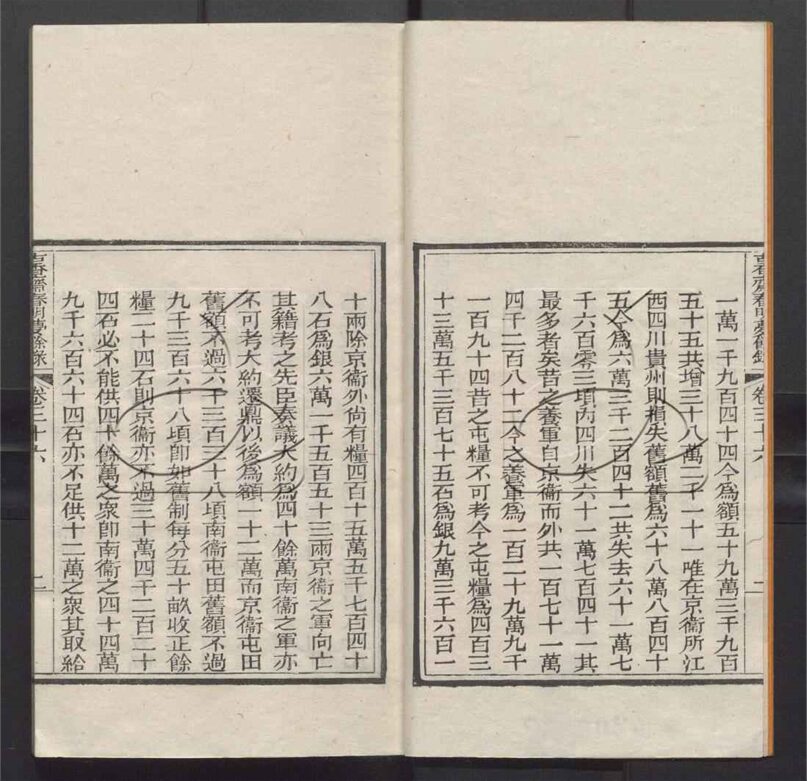 古香齋春明夢餘錄　卷三十六　二
一萬一千九百四十四今爲額五十九萬三千九百
五十五共增三十八萬二千一十一唯在京衞所江
西四川貴州則損失舊額舊爲六十八萬八百四十
五今爲六萬三千二百四十二共失去六十一萬七
千六百零三頃內四川失六十一萬七百四十一其
最多者矣昔之養軍自京衞而外共一百七十一萬
四千二百八十二今之養軍爲一百二十九萬九千
一百九十四昔之屯糧不可考今之屯糧爲四百三
十三萬五千三百七十五石爲銀九萬三千六百一
十兩除京衞外尙有糧四百十五萬五千七百四十
八石爲銀六萬一千五百五十三兩京衞之軍向亡
其籍考之先臣奏議大約爲四十餘萬南衞之軍亦
不可考大約還鼎以後爲額一十二萬而京衞屯田
舊額不過六千三百三十八頃南衞屯田舊額不過
九千三百六十八頃卽如舊制每分五十畝收正餘
糧二十四石則京衞亦不過三十萬四千二百二十
四石必不能供四十餘萬之衆卽南衞之四十四萬
九千六百六十四石亦不足供十二萬之衆其取給
古香齋春明夢餘錄　卷三十六